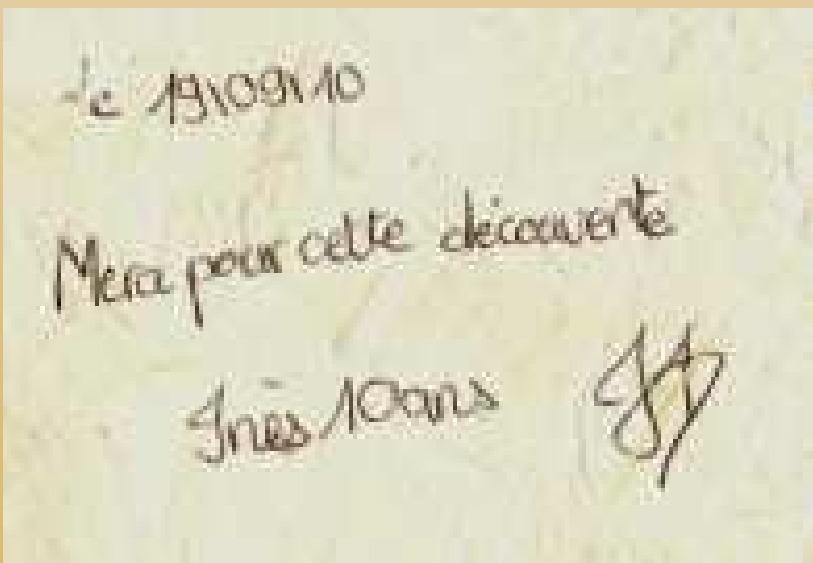 le 19\09\10
Merci pour cette découverte
Inès 10ans